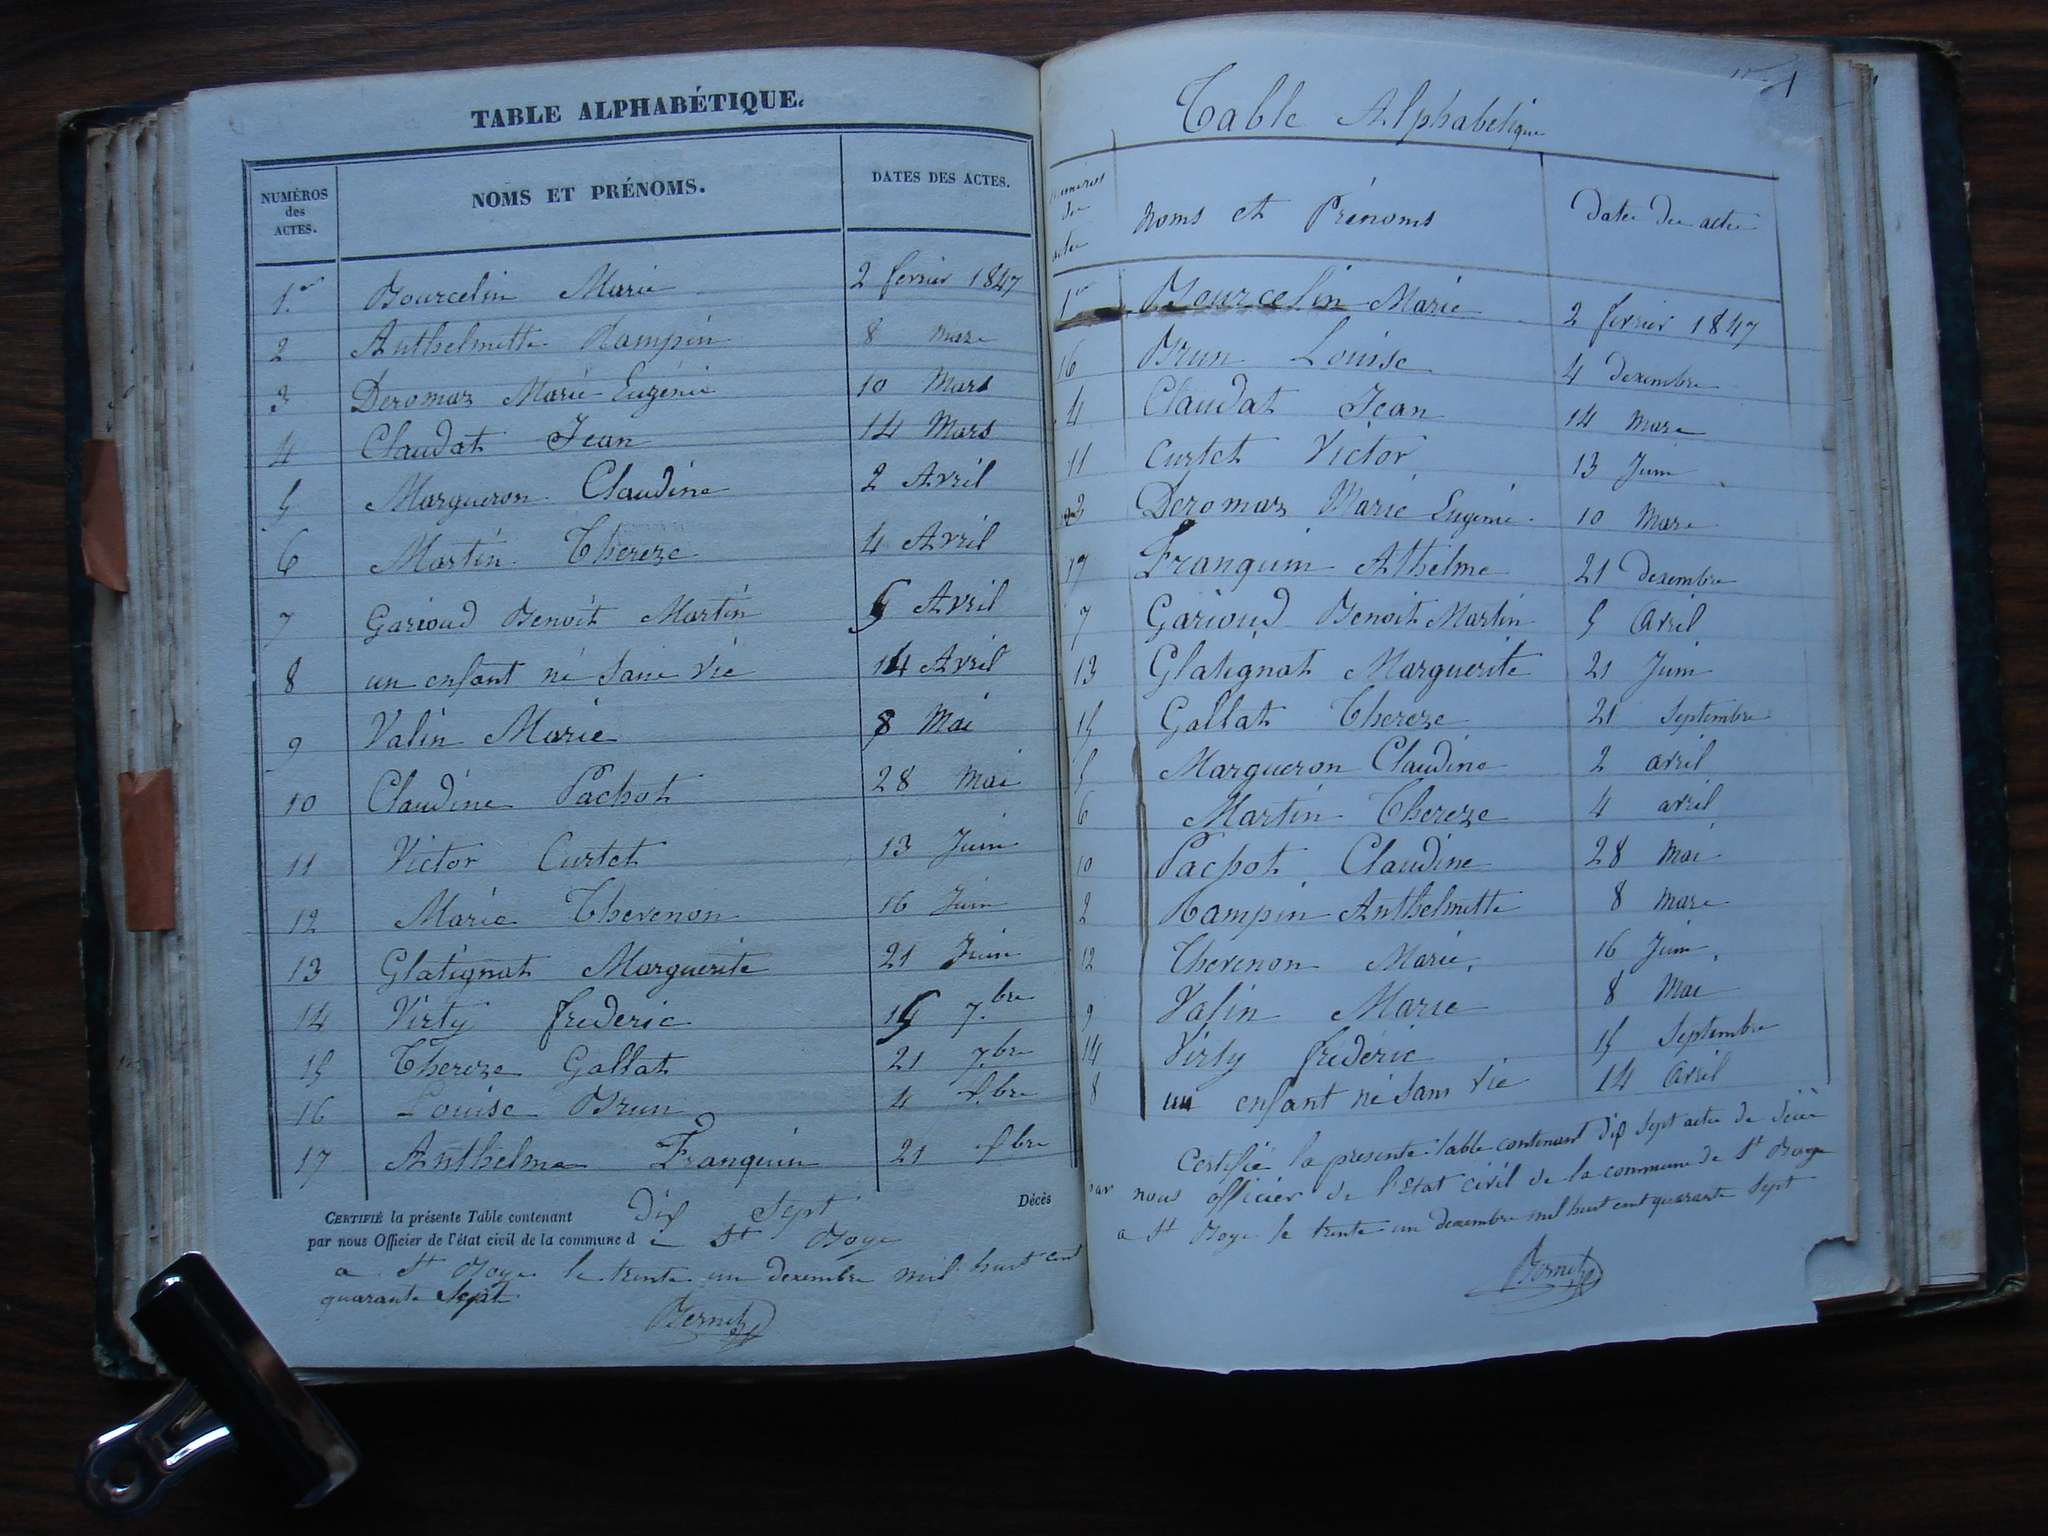 TABLE ALPHABÉTIQUE.
NUMÉROS des ACTES. NOMS ET PRÉNOMS. DATES DES ACTES.
1.er Bourcelin Marie 2 fevrier 1847
2 Anthelmette Rampin 8 mars
3 Deromas Marie Eugénie 10 Mars
4 Claudat Jean 14 Mars
5 Margueron Claudine 2 Avril
6 Martin Thereze 4 Avril
7 Garioud Benoit Martin 5 Avril
8 un enfant né sans vie 14 Avril
9 Valin Marie 8 Mai
10 Claudine Pachot 28 Mai
11 Victor Curtet 13 Juin
12 Marie Thevenon 16 Juin
13 Glatignat Marguerite 21 Juin
14 Virty frederic 15 7.bre
15 Thereze Gallat 21 7.bre
16 Louise Brun 4 bre
17 Anthelme Franquin 21 bre
CERTIFIÉ la présente Table contenant dix sept Décès
par nous Officier de l'état civil de la commune d e St Boge
a St Boge le trente un dexembre mil huit cent
quarante sept
Table Alphabetique
numeros des actes Noms et Prénoms Dates des actes
1er Bourcelin Marie 2 fevrier 1847
16 Brun Louise 4 dexembre
4 Claudat Jean 14 mars
11 Curtet Victor 13 Juin
3 Deromas Marie Eugenie 10 Mars
17 Franquin Athelme 21 dexembre
7 Garioud Benoit Martin 5 Avril
13 Glatignat Marguerite 21 Juin
15 Gallat Thereze 21 Septembre
5 Margueron Claudine 2 avril
6 Martin Thereze 4 avril
10 Pachot Claudine 28 Mai
2 Rampin Anthelmette 8 mars
12 Thevenon Marie 16 Juin
9 Valin Marie 8 Mai
14 Virty frederic 15 Septembre
8 un enfant né sans vie 14 Avril
Certifié la presente table contenant dix sept actes de décès
par nous officier de l'etat civil de la commune de St Boge
a St Boge le trente un dexembre mil huit cent quarante sept